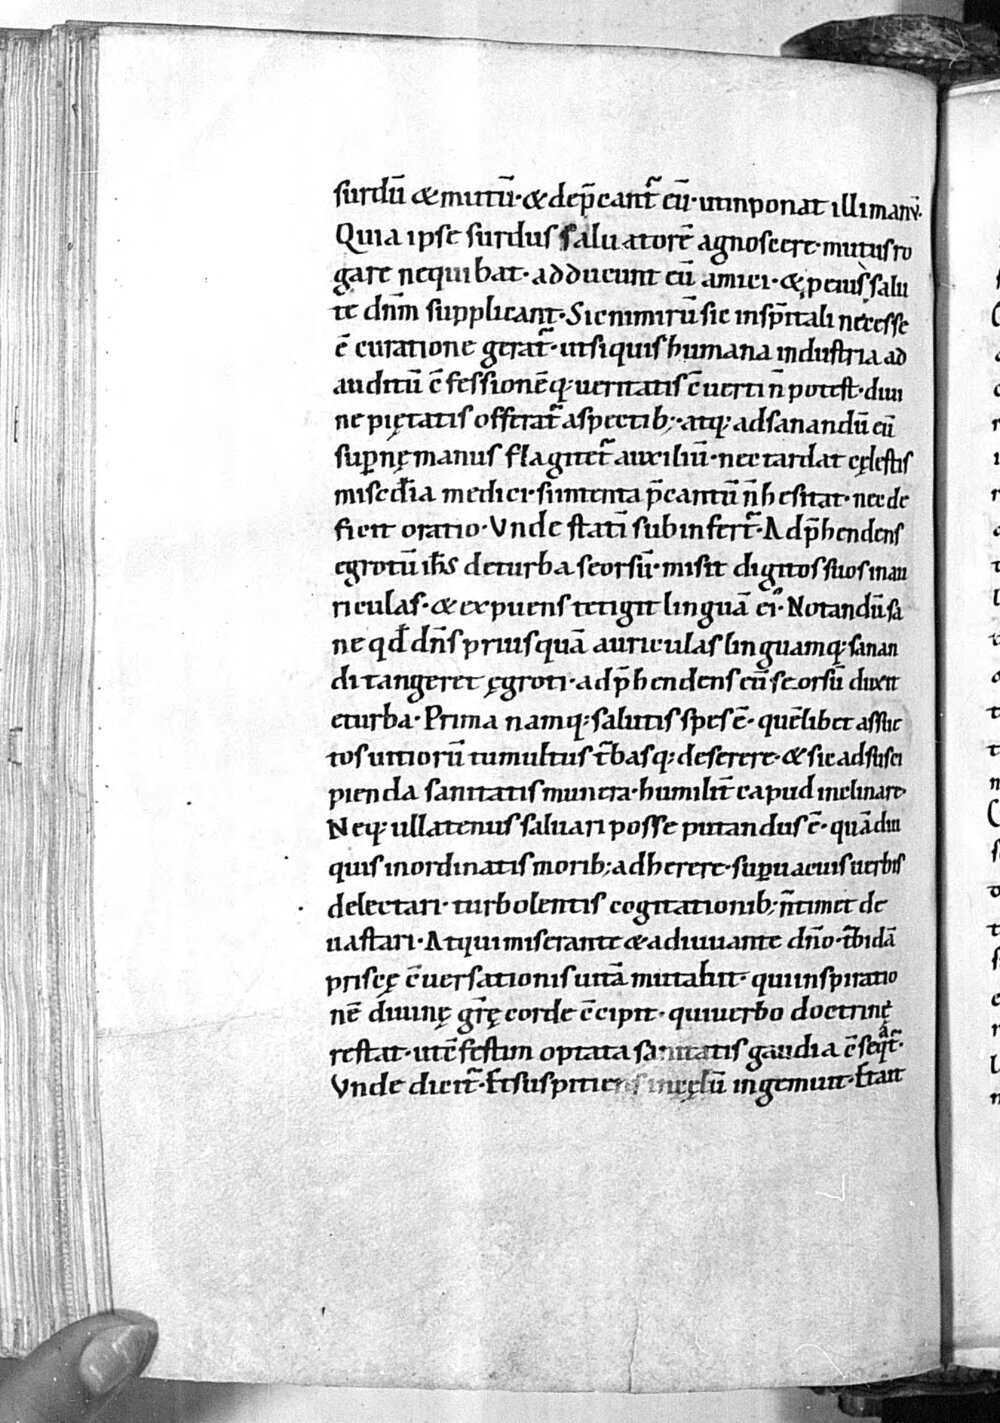 surdū & mutū· & dep̄cant᷑ eū· ut inponat illi manū·
Quia ipse surdus saluatorē agnoscere· mutus ro
gare nequibat· adducunt eū amici· & p ei salu
te dn̄m supplicant· Sic nimirū sic in sp̄itali necesse
ē curatione gerat᷑· ut si quis humana industria ad
auditū c̄fessionēq; ueritatis c̄uerti n̄ potest· diui
ne pię̨tatis offerat᷑ aspectib;· atq; ad sanandū eū
sup̱nę manus flagitet᷑ auxiliū· nec tardat cęlestis
misc̄dia medici· si intenta p̄cantū n̄ hesitat· nec de
ficit oratio· Vnde statī subinfert᷑· Adp̄hendens
egrotū ih̄s de turba seorsū· misit digitos suos in au
riculas· & expuens tetigit linguā ei᾽· Notandū sa
ne qđ dn̄s priusquā auriculas linguamq; sanan
di tangeret ęgroti· adp̄hendens eū seorsū duxit
e turba· Prima namq; salutis spes ē· quēlibet assue
tos uitiorū tumultus t᷑basq; deserere· & sic ad susci
pienda sanitatis munera· humilit᷑ capud inclinare·
Neq; ullatenus saluari posse putandus ē· quādiu
quis inordinatis morib; adherere· sup̱uacuis uerbis
delectari· turbolentis cogitationib; n̄ timet de
uastari· At qui miserante & adiuuante dn̄o· t᷑bidā
priscę c̄uersationis uitā mutabit· qui inspiratio
nē diuinę gr̄ę corde c̄cipit· qui uerbo doctrinę
restat· ut c̄festim optata sanitatis gaudia c̄seq̇at᷑·
Vnde dicit᷑· Et suspitiens in cęlū ingemuit· Et ait